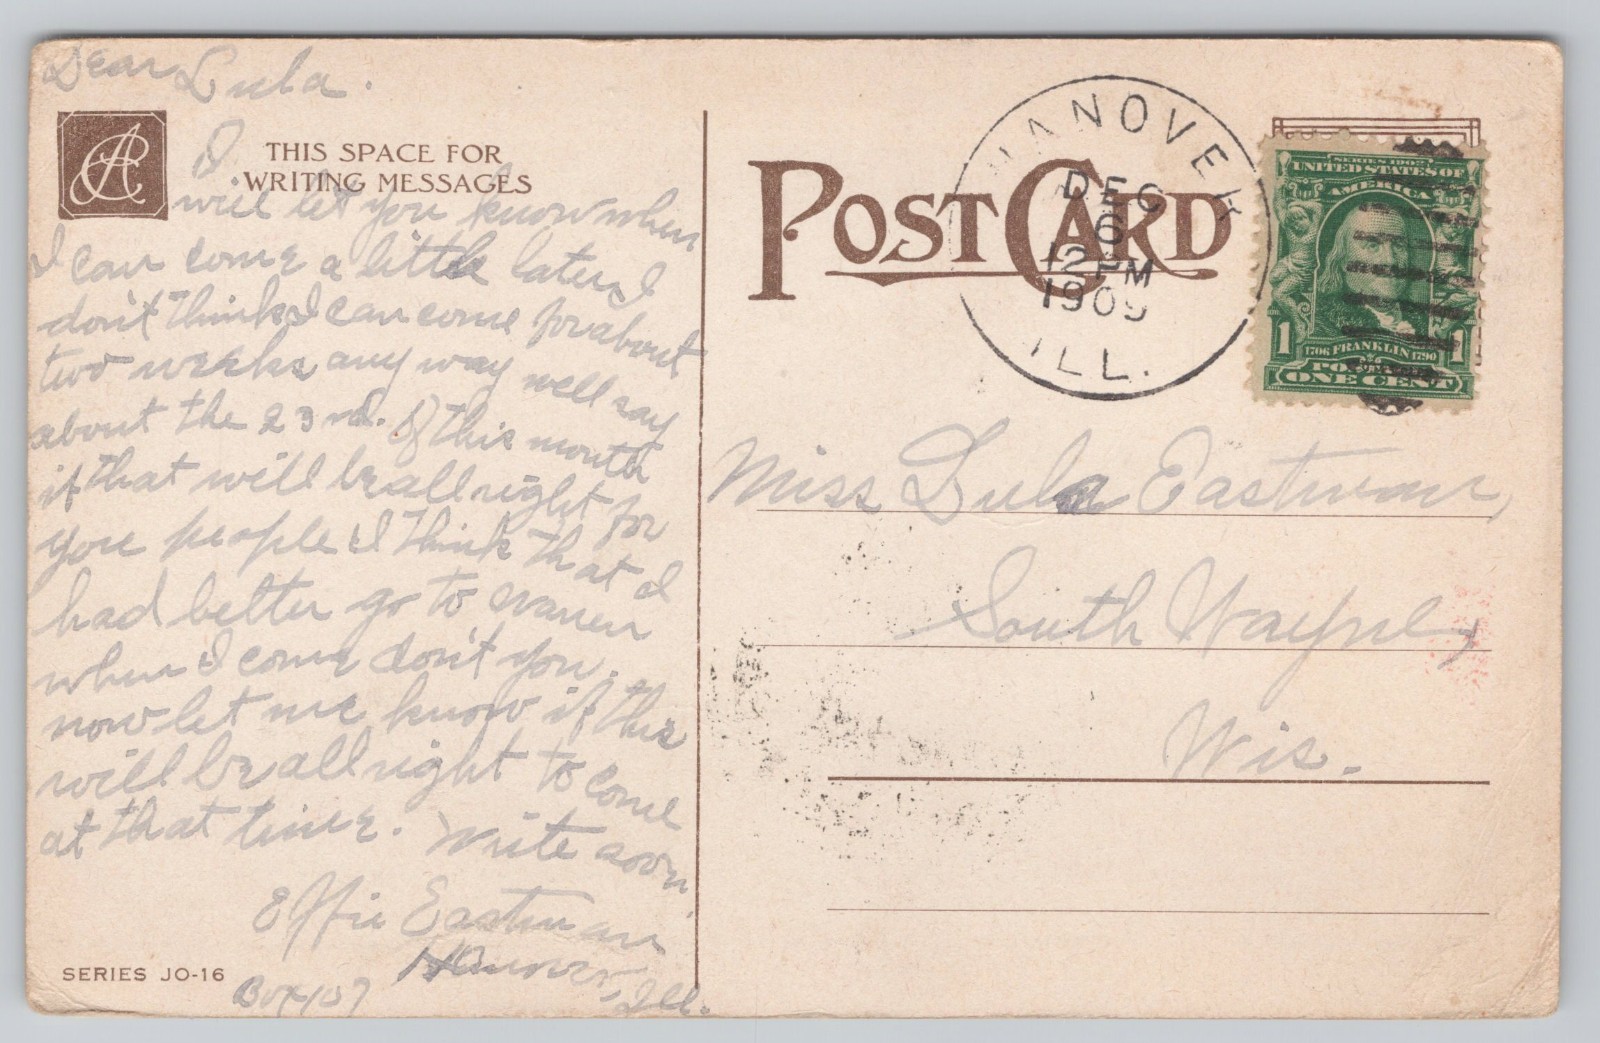 Dear Lula.
I
THIS SPACE FOR
WRITING MESSAGES
will let you know when
I can come a little later I
don't think I can come for about
two weeks any way well say
about the 23rd. of this month
if that will be all right for
you people I think that I
had better go to Warren
when I come don't you.
now let me know if this
will be all right to come
at that time. Write soon.
Effie Eastman
Hanover, Ill.
Box 107
SERIES JO-16
POST CARD
HANOVER
DEC
6
12 PM
1909
ILL.
SERIES 1902
UNITED STATES OF
AMERICA
1 1
1706 FRANKLIN 1790
POSTAGE
ONE CENT
Miss Lula Eastman,
South Wayne,
Wis.